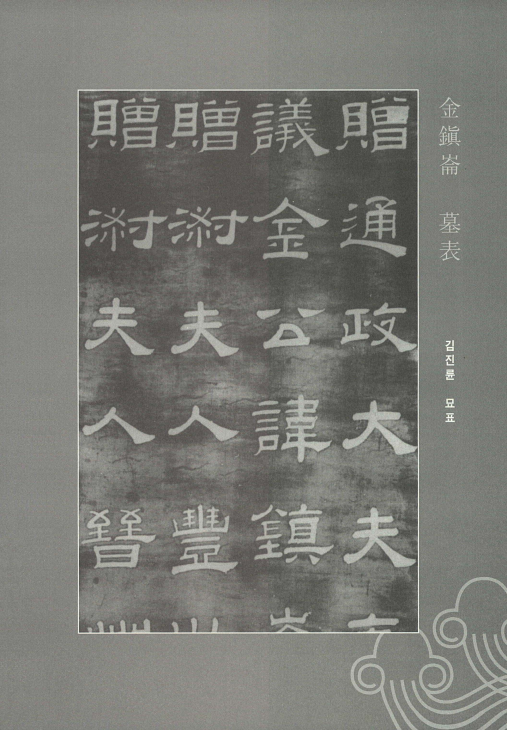 金鎭崙 墓表
김진륜 묘표
贈通政大夫
議金公諱鎭
贈淑夫人豐
贈淑夫人晉